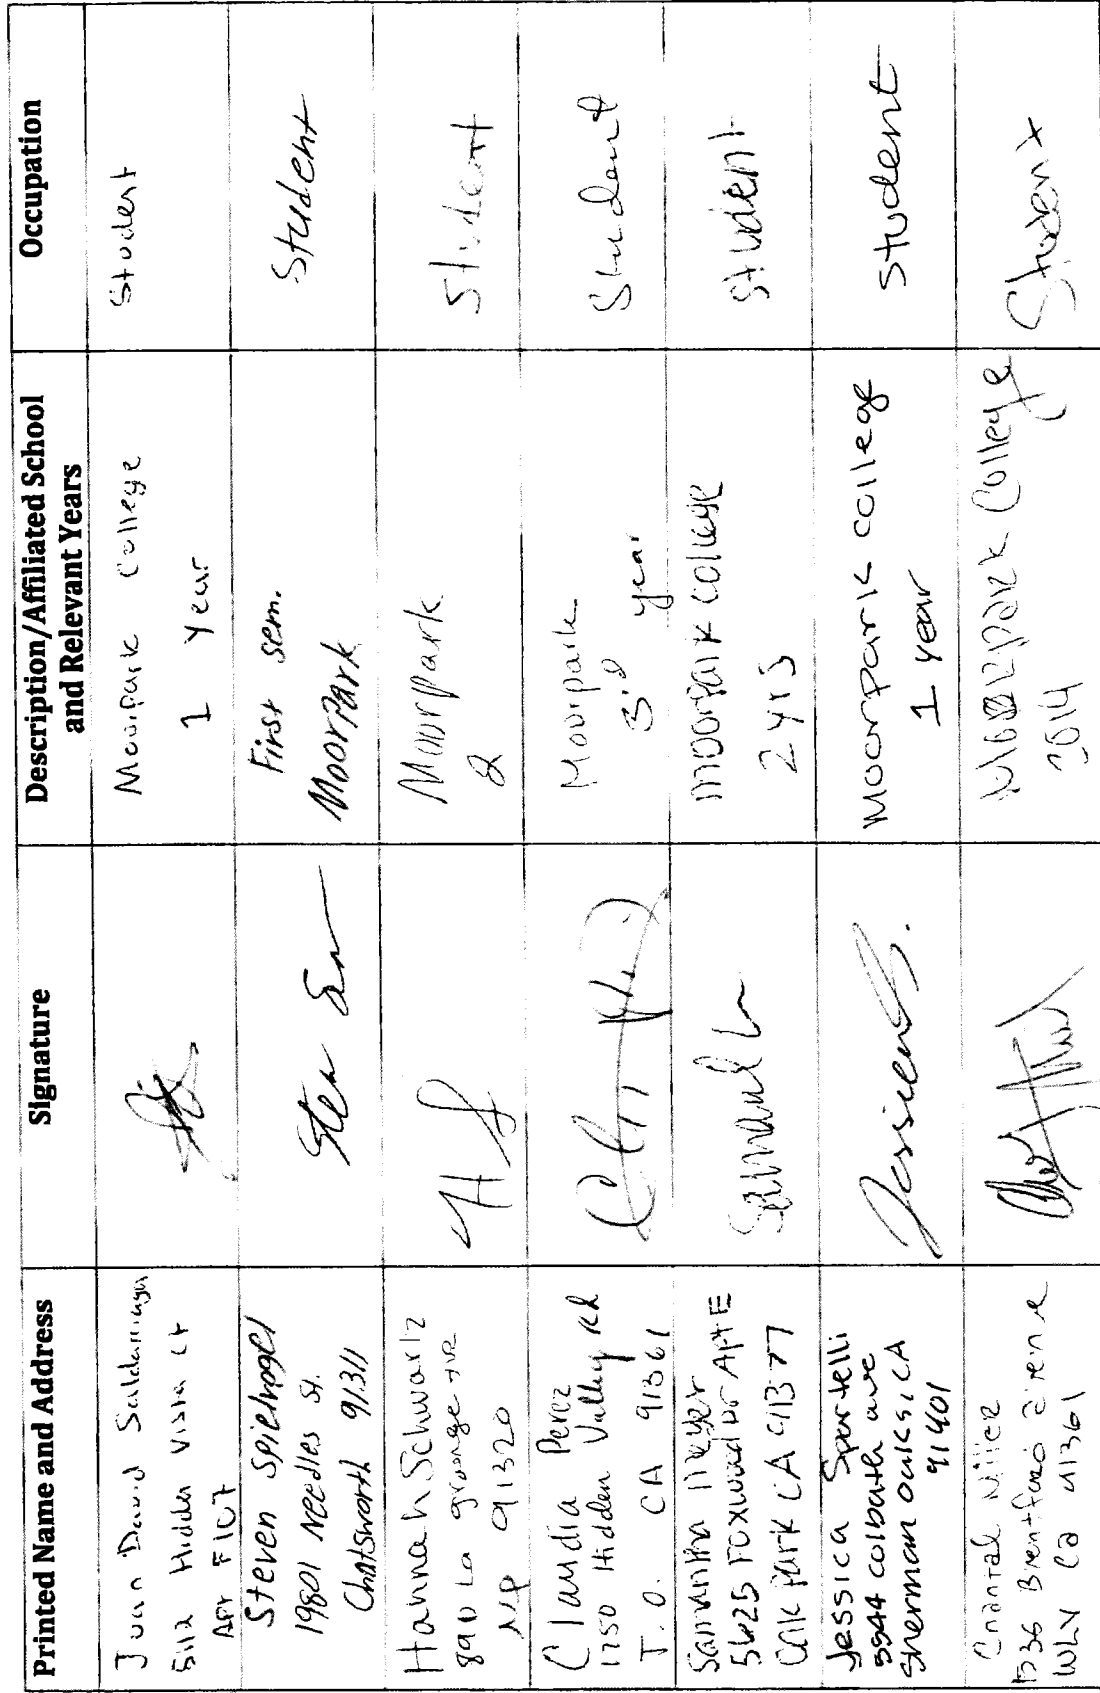 Printed Name and Address
Signature
Description/Affiliated School
and Relevant Years
Occupation
Juan David
512 Hidden Vista Ct
Apt F107
Moorpark College
1 Year
Student
Steven
19801 Needles St.
Chatsworth 91311
First sem.
MoorPark
Student
Hannah Schwartz
890 La grange Ave
NP 91320
Moorpark
2
Student
Claudia Perez
1750 Hidden Valley Rd
T.O. CA 91361
Moorpark
3rd year
Student
Samantha Meyer
5625 Foxwood Dr Apt E
Oak Park CA 91377
moorpark college
2 yrs
Student
Jessica Sportelli
5944 colbath ave
Sherman oaks, CA
91401
Jessica S.
Moorpark college
1 year
Student
Chantal Miller
Brentford
WLV Ca 91361
College
2014
Student